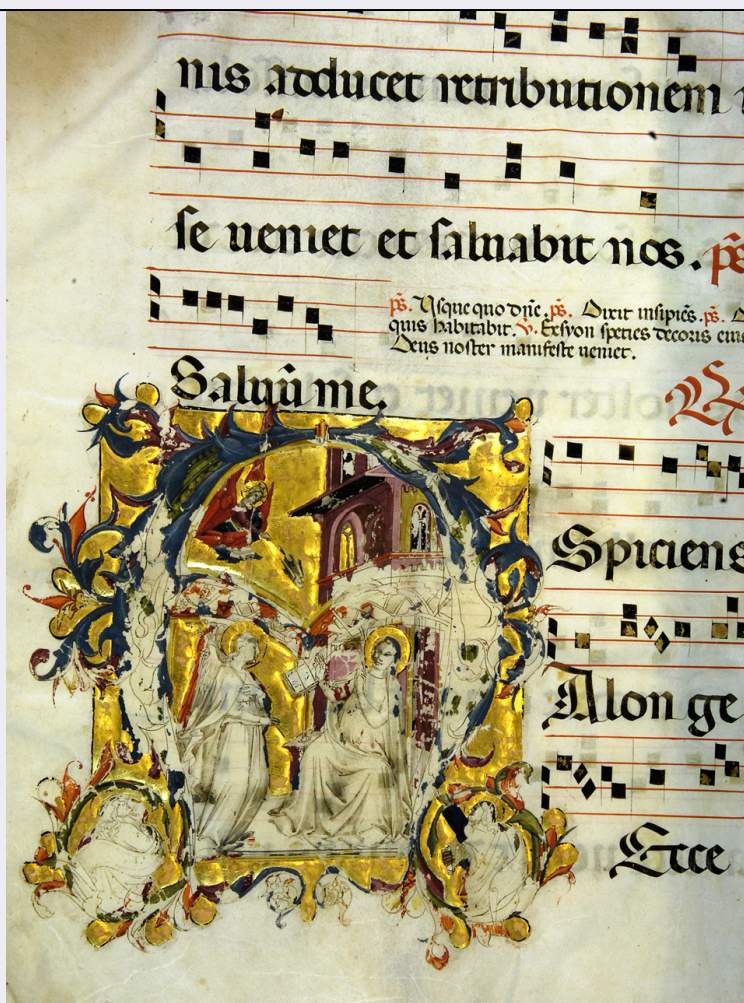 nis adducet retributionem
se ueniet et saluabit nos. ps̃
ps̃. Usque quo dñe. ps̃. Dixit insipiẽs. ps̃.
quis habitabit. v̾. Ex syon species decoris eius
Deus noster manifeste ueniet.
Saluũ me.
Spiciens
A lon ge
Ecce